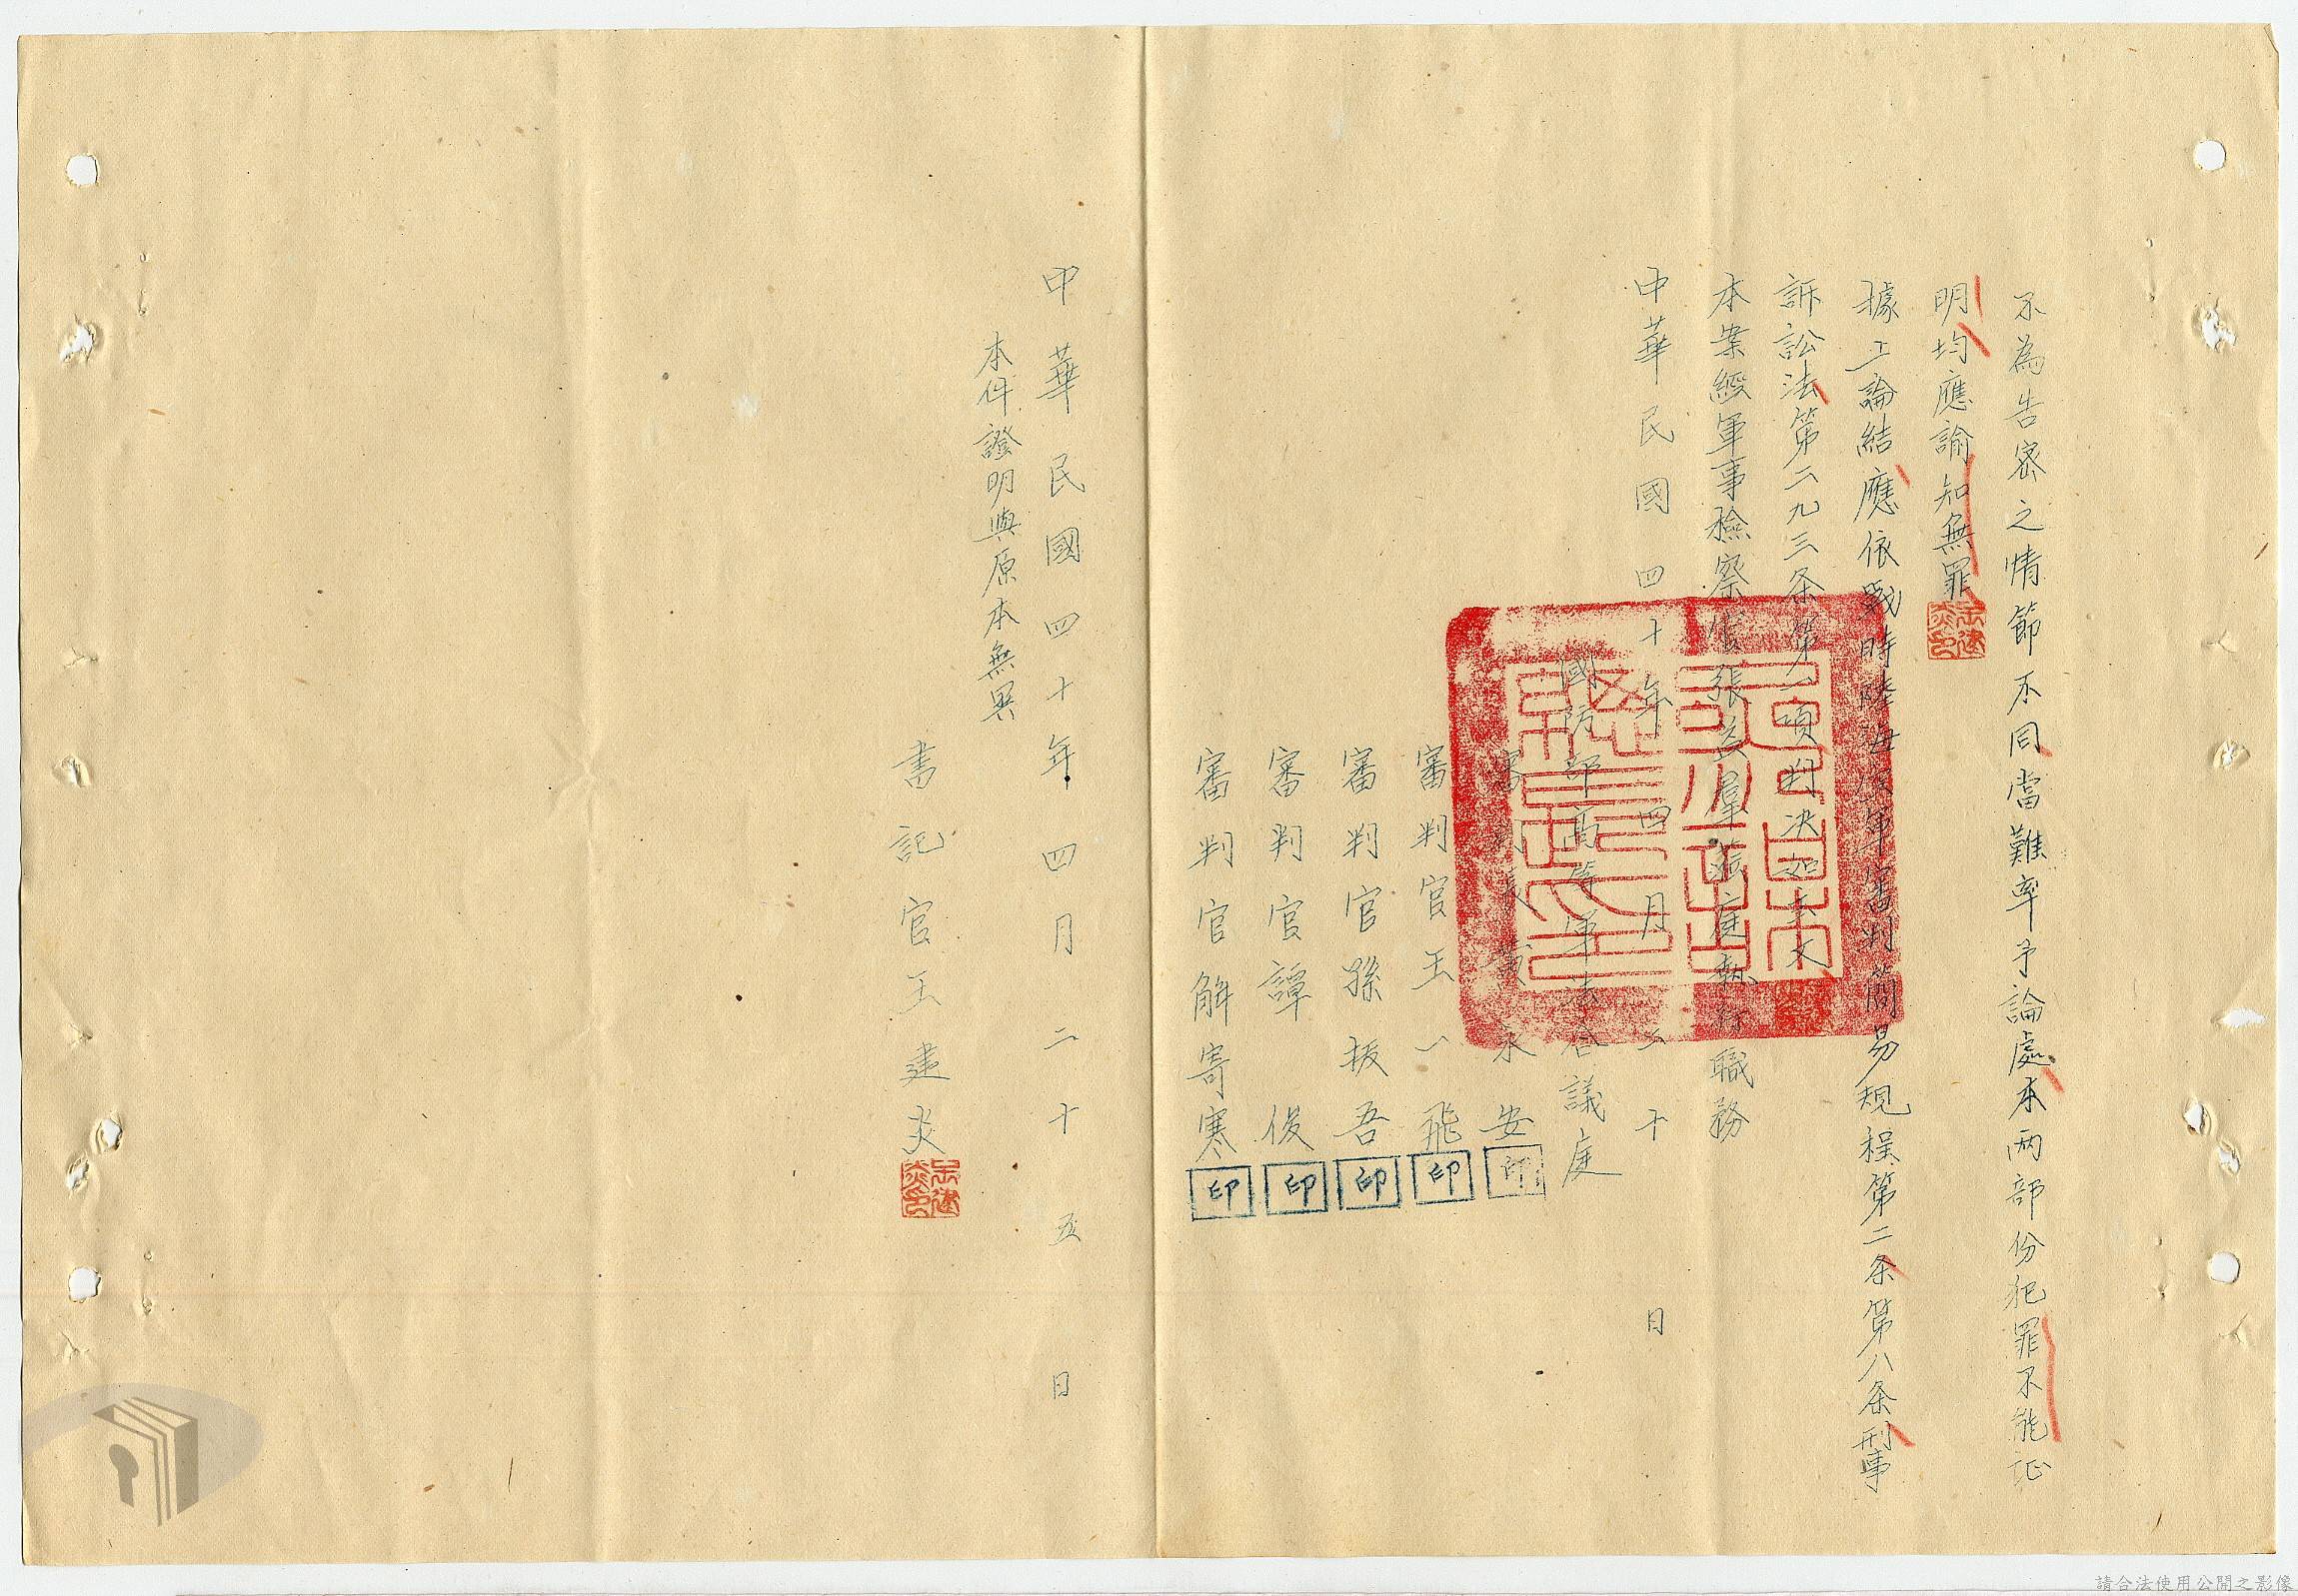 不為告密之情節不同當難率予論處本兩部份犯罪不能証
明均應諭知無罪
據上論結應依戰時陸海空軍審判簡易規程第二条第八条刑事
訴訟法第二九三条第一項判决如主文
本案經軍事檢察官張益群蒞庭執行職務
中華民國四十年四月二十日
國防部高等軍法合議庭
審判長黃永安 印
審判官王一飛 印
審判官孫振吾 印
審判官譚俊 印
審判官解寄寒 印
中華民國四十年四月二十五日
本件證明與原本無異
書記官王建炎
請合法使用公開之影像